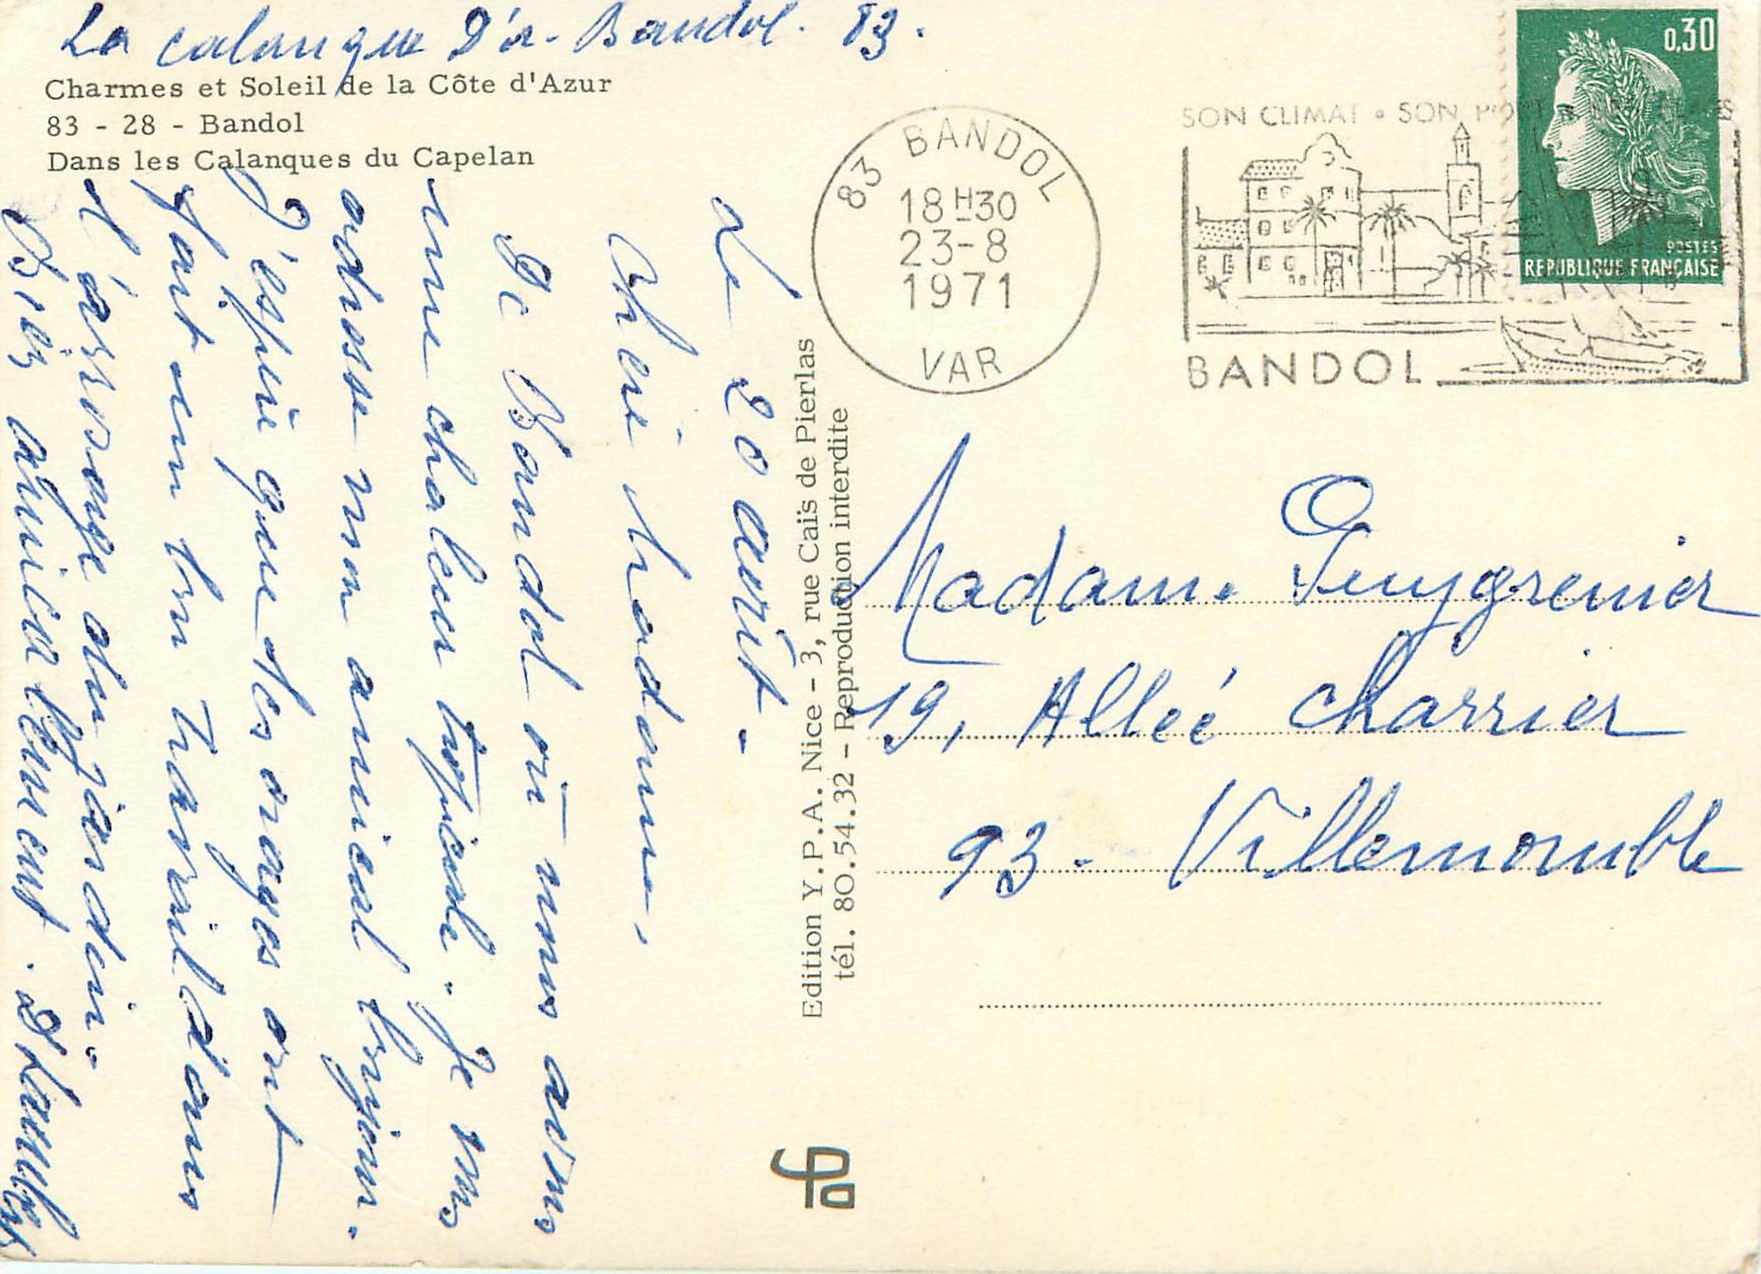 La calanque D'or - Bandol. 83.
Charmes et Soleil de la Côte d'Azur
83 - 28 - Bandol
Dans les Calanques du Capelan
Le 20 août -
Chère Madame,
De Bandol où nous avons
une chaleur tropicale. Je vous
adresse mon amical bonjour.
J'espère que des orages ont
fait un bon travail dans
l'arrosage du jardin.
Bien amicalement.
Edition Y.P.A. Nice - 3, rue Caïs de Pierlas
tél. 80.54.32 - Reproduction interdite
83 BANDOL
18H30
23-8
1971
VAR
SON CLIMAT • SON
BANDOL
0,30
POSTES
REPUBLIQUE FRANÇAISE
Madame Puygrenier
19, Allée Charrier
93 - Villemomble